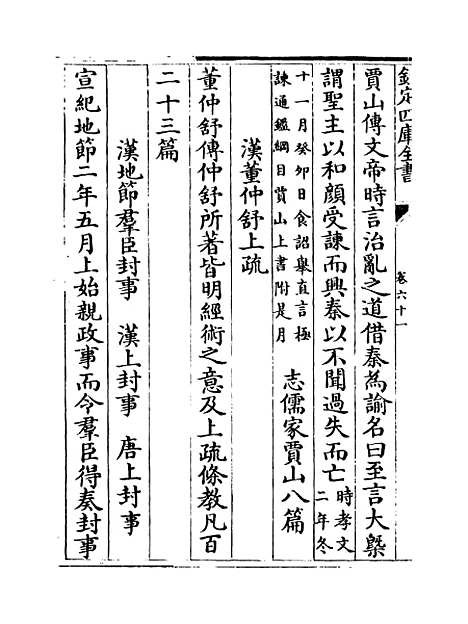 欽定四庫全書
卷六十一
賈山傳文帝時言治亂之道借秦為諭名曰至言大槩
謂聖主以和顔受諫而興秦以不聞過失而亡時孝文二年冬
十一月癸卯日食詔舉直言極諫通鑑綱目賈山上書附是月
志儒家賈山八篇
漢董仲舒上疏
董仲舒傳仲舒所著皆明經術之意及上疏條教凡百
二十三篇
漢地節羣臣封事 漢上封事 唐上封事
宣紀地節二年五月上始親政事而令羣臣得奏封事